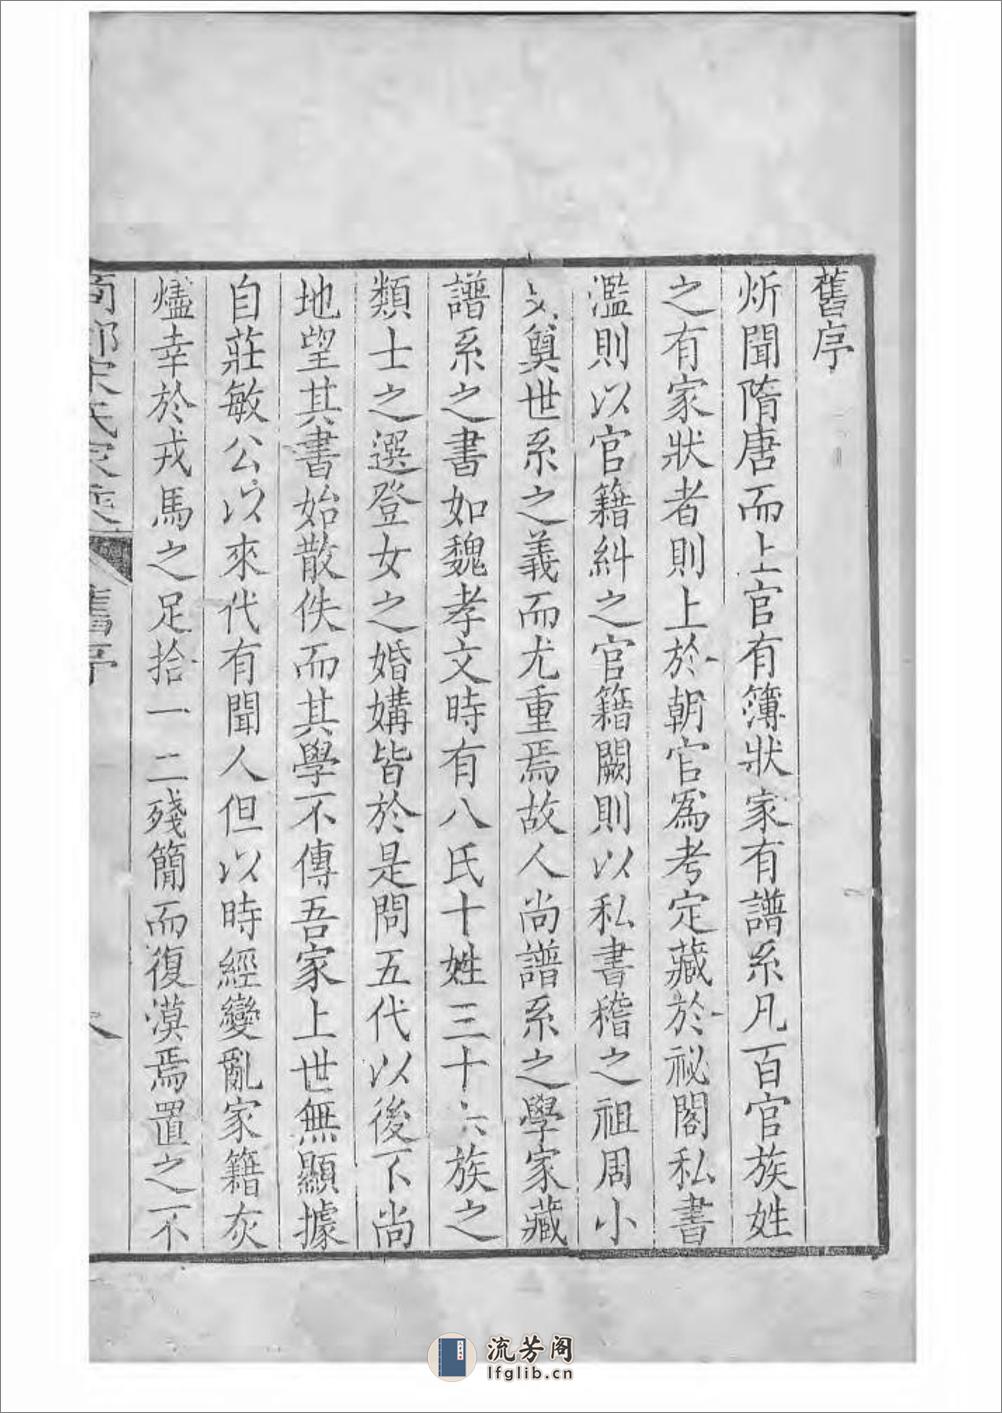 舊序
炘聞隋唐而上官有簿狀家有譜系凡百官族姓
之有家狀者則上於朝官爲考定藏於祕閣私書
濫則以官籍糾之官籍闕則以私書稽之祖周小
史奠世系之義而尤重焉故人尚譜系之學家藏
譜系之書如魏孝文時有八氏十姓三十六族之
類士之選登女之婚媾皆於是問五代以後不尚
地望其書始散佚而其學不傳吾家上世無顯據
自莊敏公以來代有聞人但以時經變亂家籍灰
燼幸於戎馬之足拾一二殘簡而復漠焉置之不
商邱宋氏家乘 舊序
流芳阁
lfglib.cn